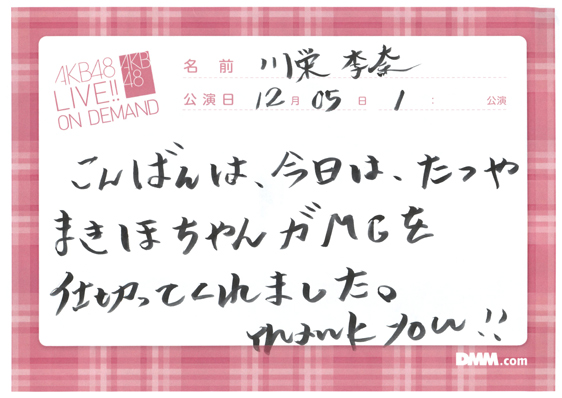 AKB48
LIVE!!
ON DEMAND
AKB
48
名前 川栄 李奈
公演日 12月 05日 1 : 公演
こんばんは、今日は、たつや
まきほちゃんがMCを
仕切ってくれました。
thank you!!
DMM.com